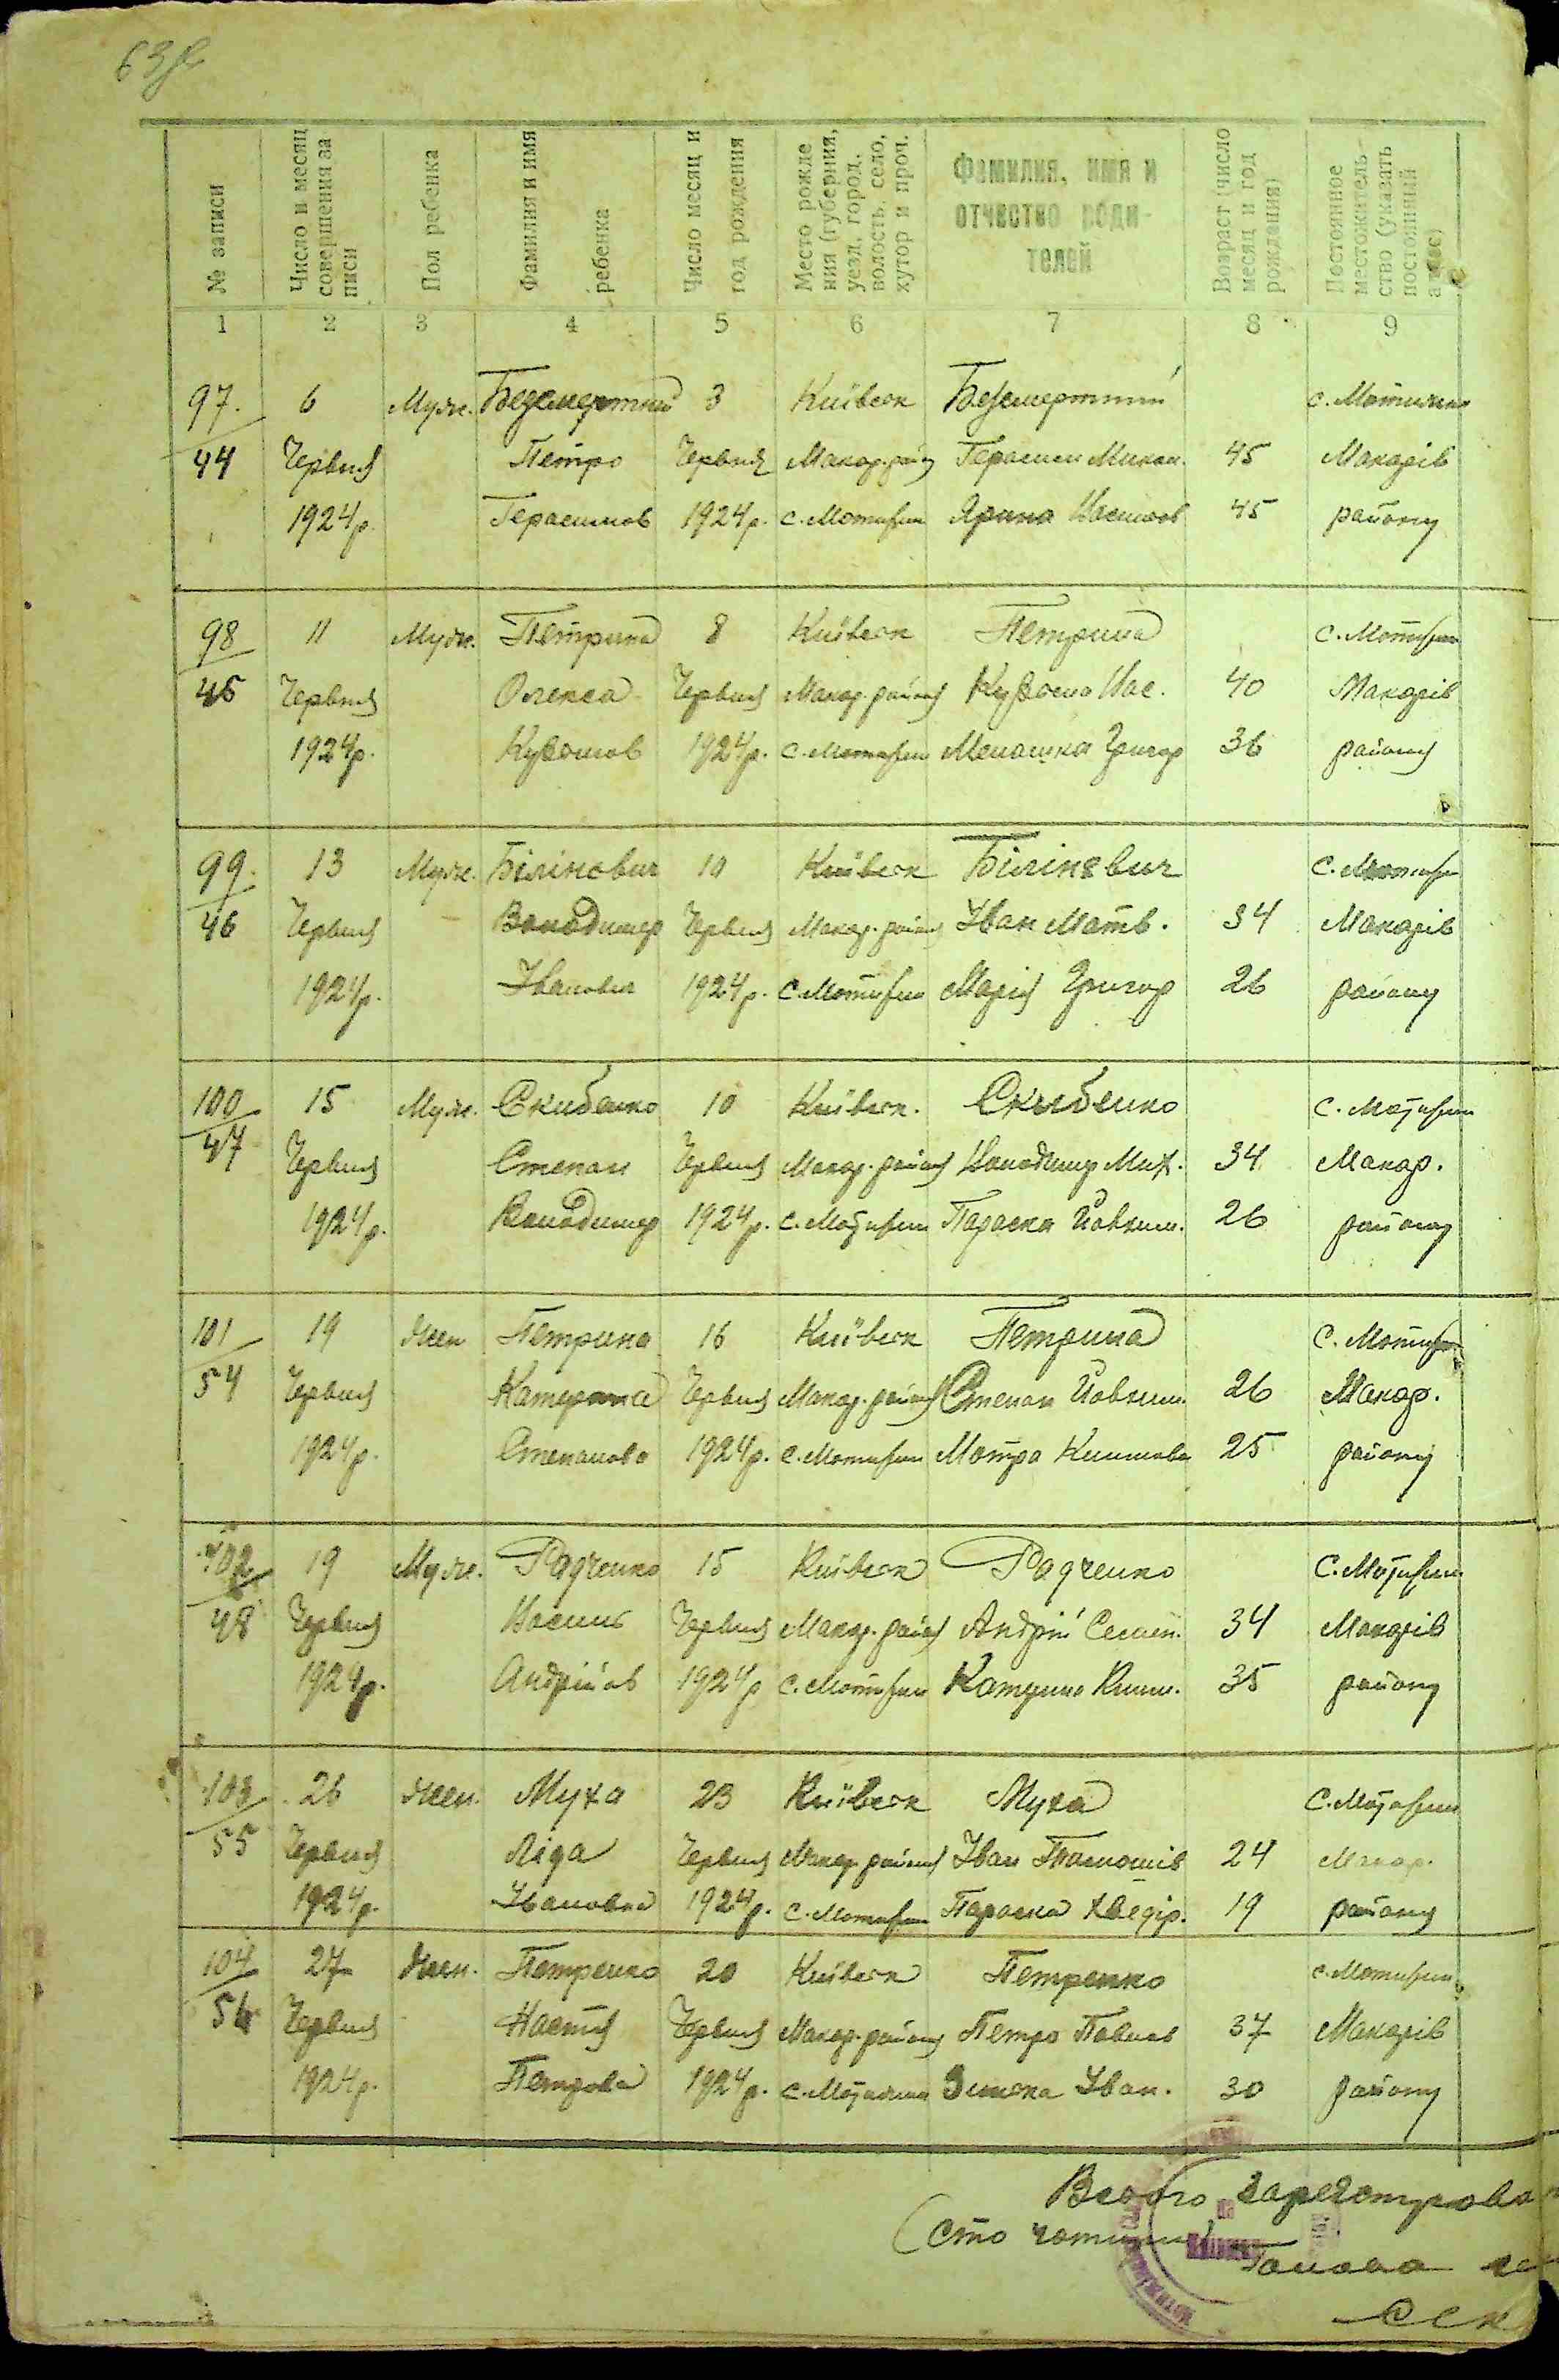 № записи
Число и месяц совершения записи
Пол ребенка
Фамилия и имя ребенка
Число месяц и год рождения
Место рождения (губерния, уезд, город, волость, село, хутор и проч.
Фамилия, имя и отчество родителей
Возраст (число месяц и год рождения)
Постоянное местожительство (указать постоянный адрес)
1 2 3 4 5 6 7 8 9
97. 6 Муж. Безсмертний 3 Київськ Безсмертний с.
44 Червня Петро Червня Макар. району Герасим Микол. 45 Макарів
1924р. Герасимов 1924р. с. Мотижин Ярина 45 району
98 11 Муж. Петрина 8 Київськ Петрина с. Мотижин
45 Червня Олекса Червня Макар. району Кузьма Вас. 40 Макарів
1924р. Кузьмов 1924р. с. Мотижин Меланка Григор 36 району
99. 13 Муж. Білінович 10 Київськ Білінович с. Мотижин
46 Червня Володимер Червня Макар. району Іван Матв. 34 Макарів
1924р. Іванович 1924р. с. Мотижин Марія Григор 26 району
100 15 Муж. Скибенко 10 Київськ. Скибенко с. Мотижин
47 Червня Степан Червня Макар. району Володимер Мих. 34 Макар.
1924р. Володимер 1924р. с. Мотижин Параска Йовхим. 26 району
101 19 жен Петрина 16 Київськ Петрина с. Мотижин
54 Червня Катерина Червня Макар. району Степан Йовхим. 26 Макар.
1924р. Степанова 1924р. с. Мотижин Мотря Климова 25 району
102 19 Муж. Радченко 15 Київськ Радченко с. Мотижин
48 Червня Йосип Червня Макар. району Андрій Семен. 34 Макарів
1924р. Андрійов 1924р с. Мотижин Катерина Клим. 35 району
103 26 жен. Муха 23 Київськ Муха с. Мотижин
55 Червня Ліда Червня Макар. району Іван 24 Макар.
1924р. Івановна 1924р. с. Мотижин Параска Хведір. 19 району
104 27 жен. Петренко 20 Київськ Петренко с. Мотижин
56 Червня Настя Червня Макар. району Петро Павлов 37 Макарів
1924р. Петрова 1924р. с. Мотижин Зінька Іван. 30 району
Всього
(сто чотири)
Голова